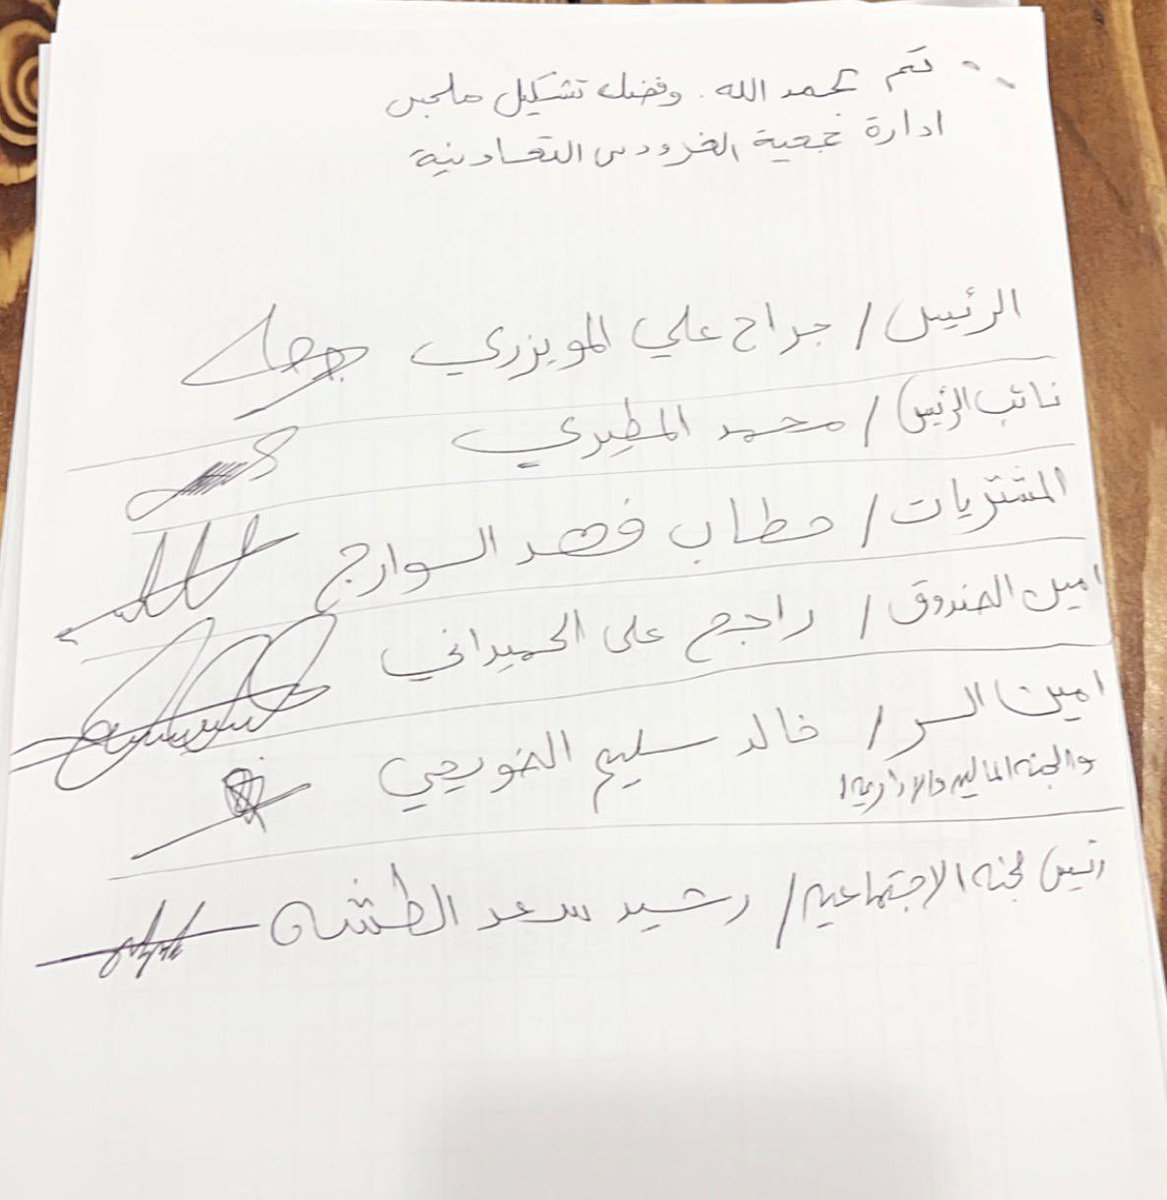 تم بحمد الله . وفضله تشكيل مجلس
ادارة جمعية الفردوس التعاونية
الرئيس / جراح علي المويزري
نائب الرئيس / محمد المطيري
المشتريات / حطاب فهد السوارج
امين الصندوق / راجح على الحميداني
امين السر / خالد سليم الخويمي
والجنه الماليه والاداريه
رئيس لجنه الاجتماعيه / رشيد سعد الطشه